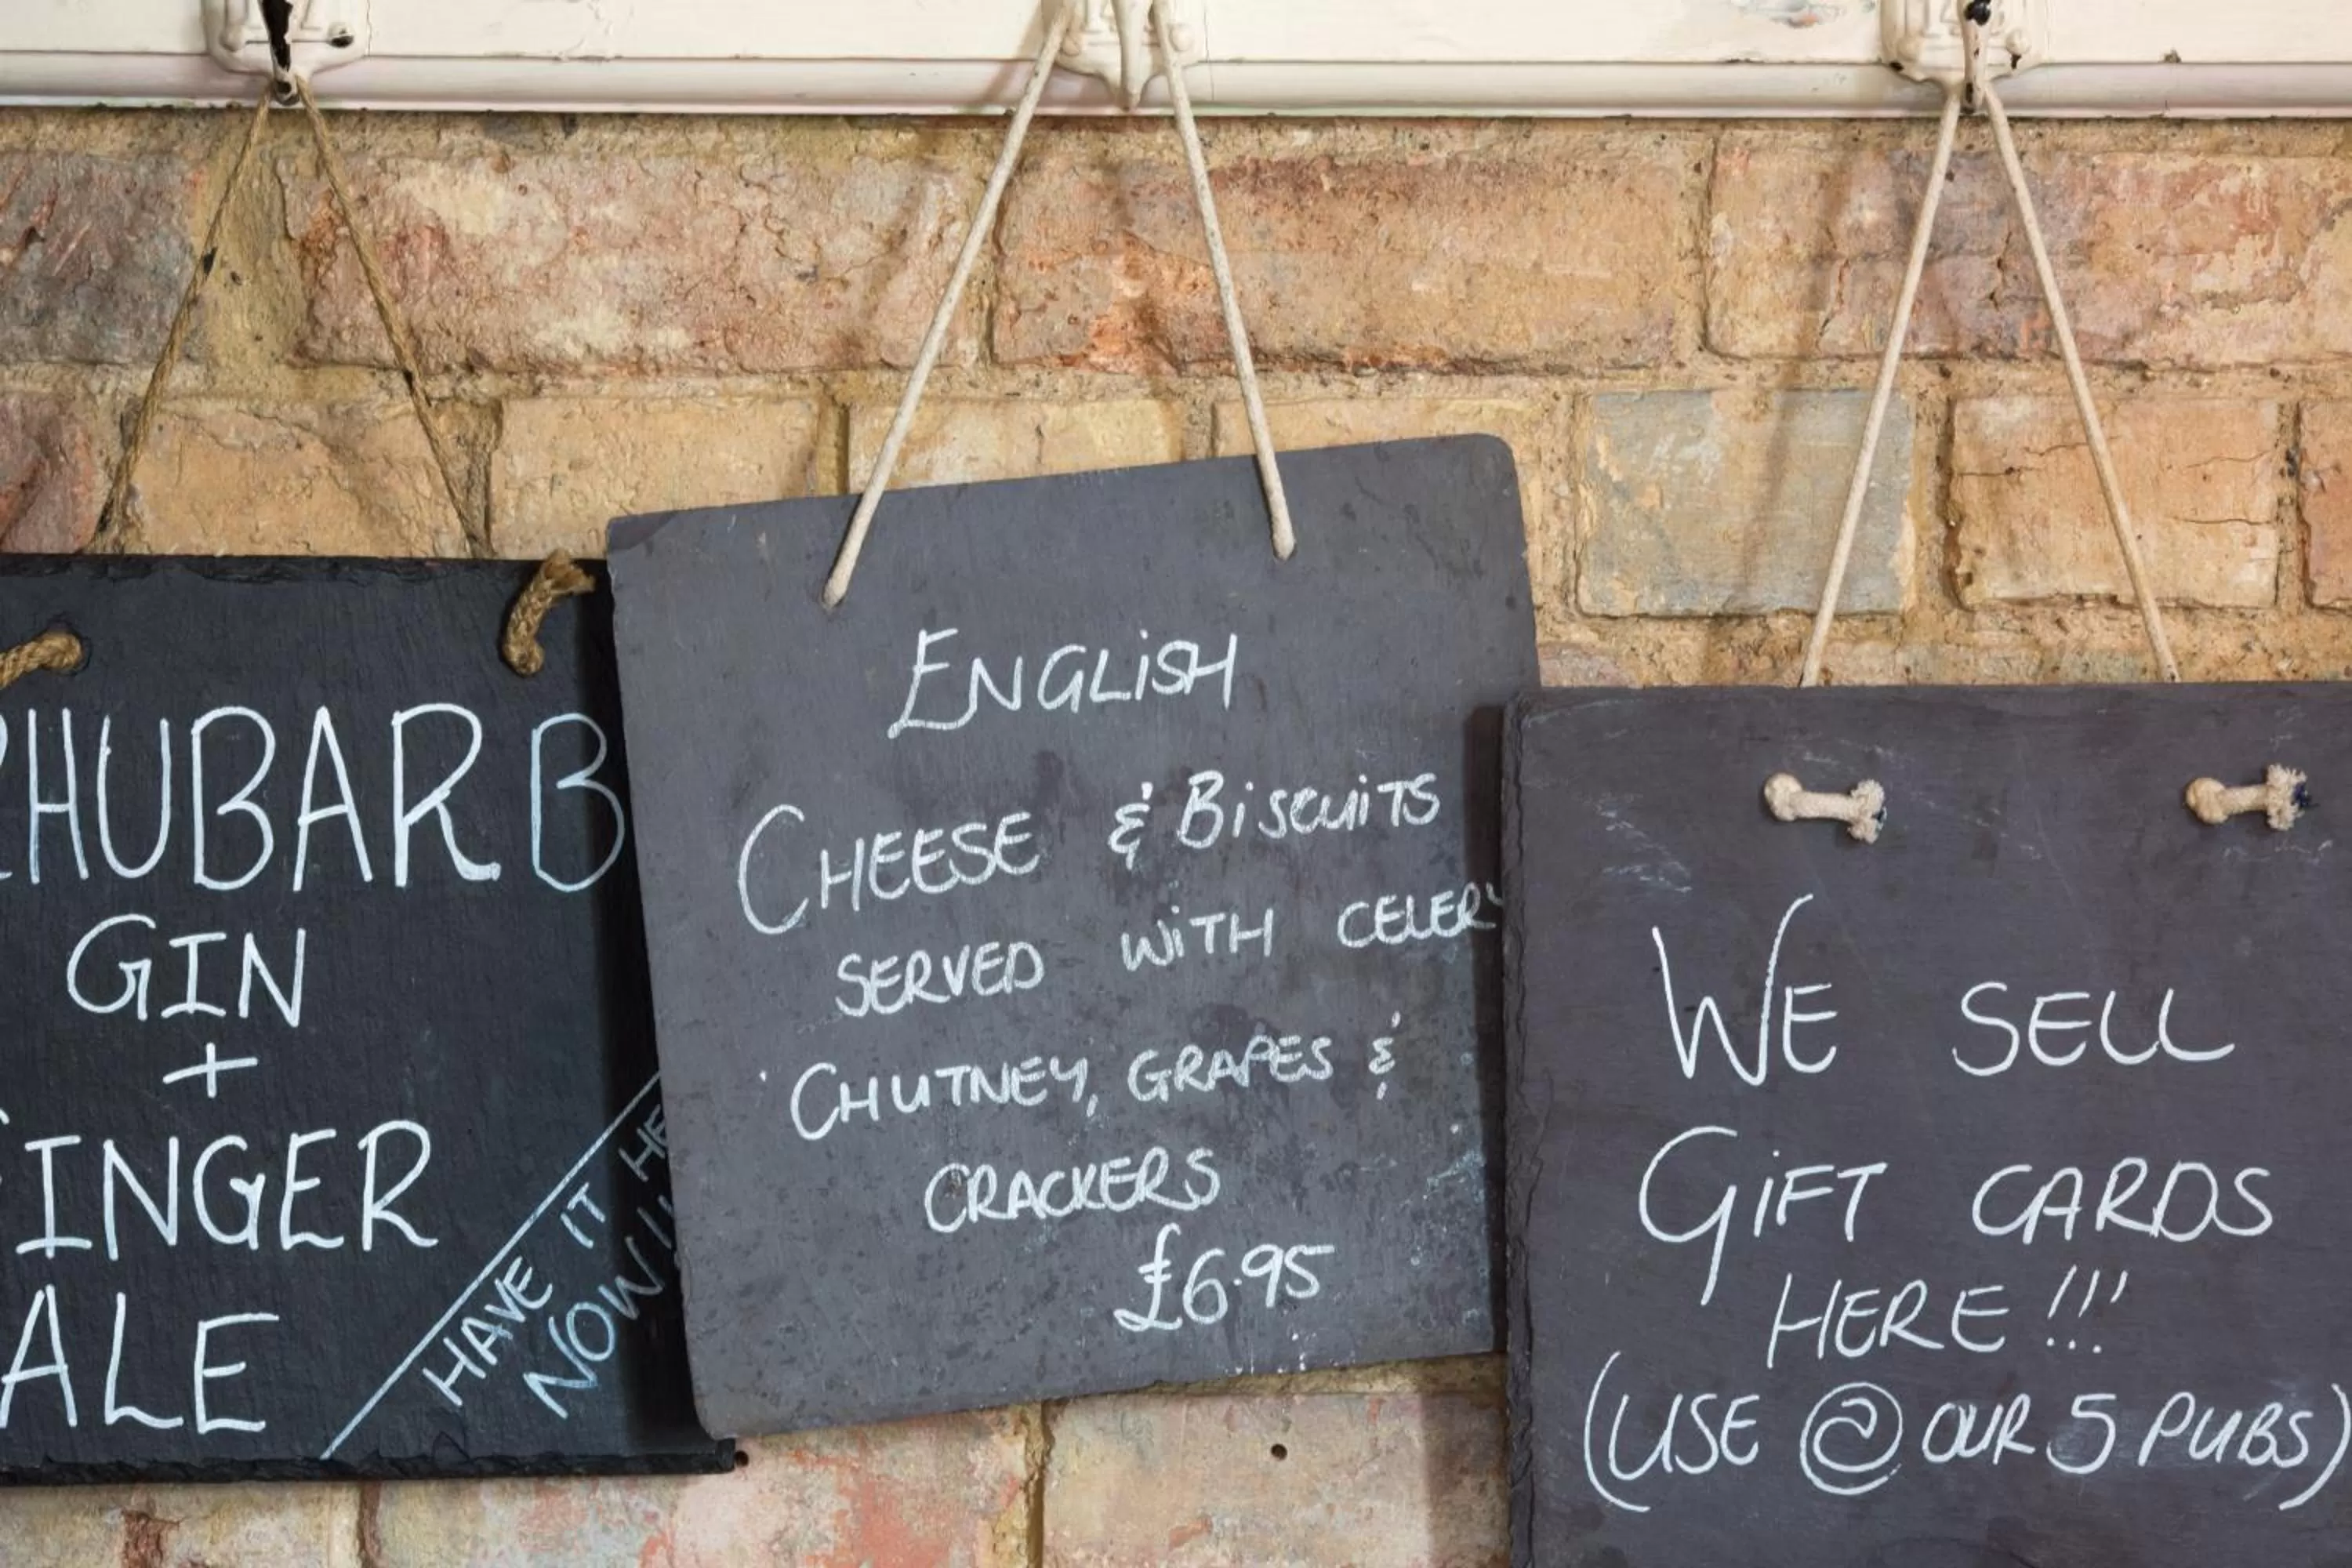 RHUBARB
GIN
+
GINGER
ALE
HAVE IT
NOW
ENGLISH
CHEESE & BISCUITS
SERVED WITH CELERY
CHUTNEY, GRAPES &
CRACKERS
£6.95
WE SELL
GIFT CARDS
HERE!!!
(USE @ OUR 5 PUBS)